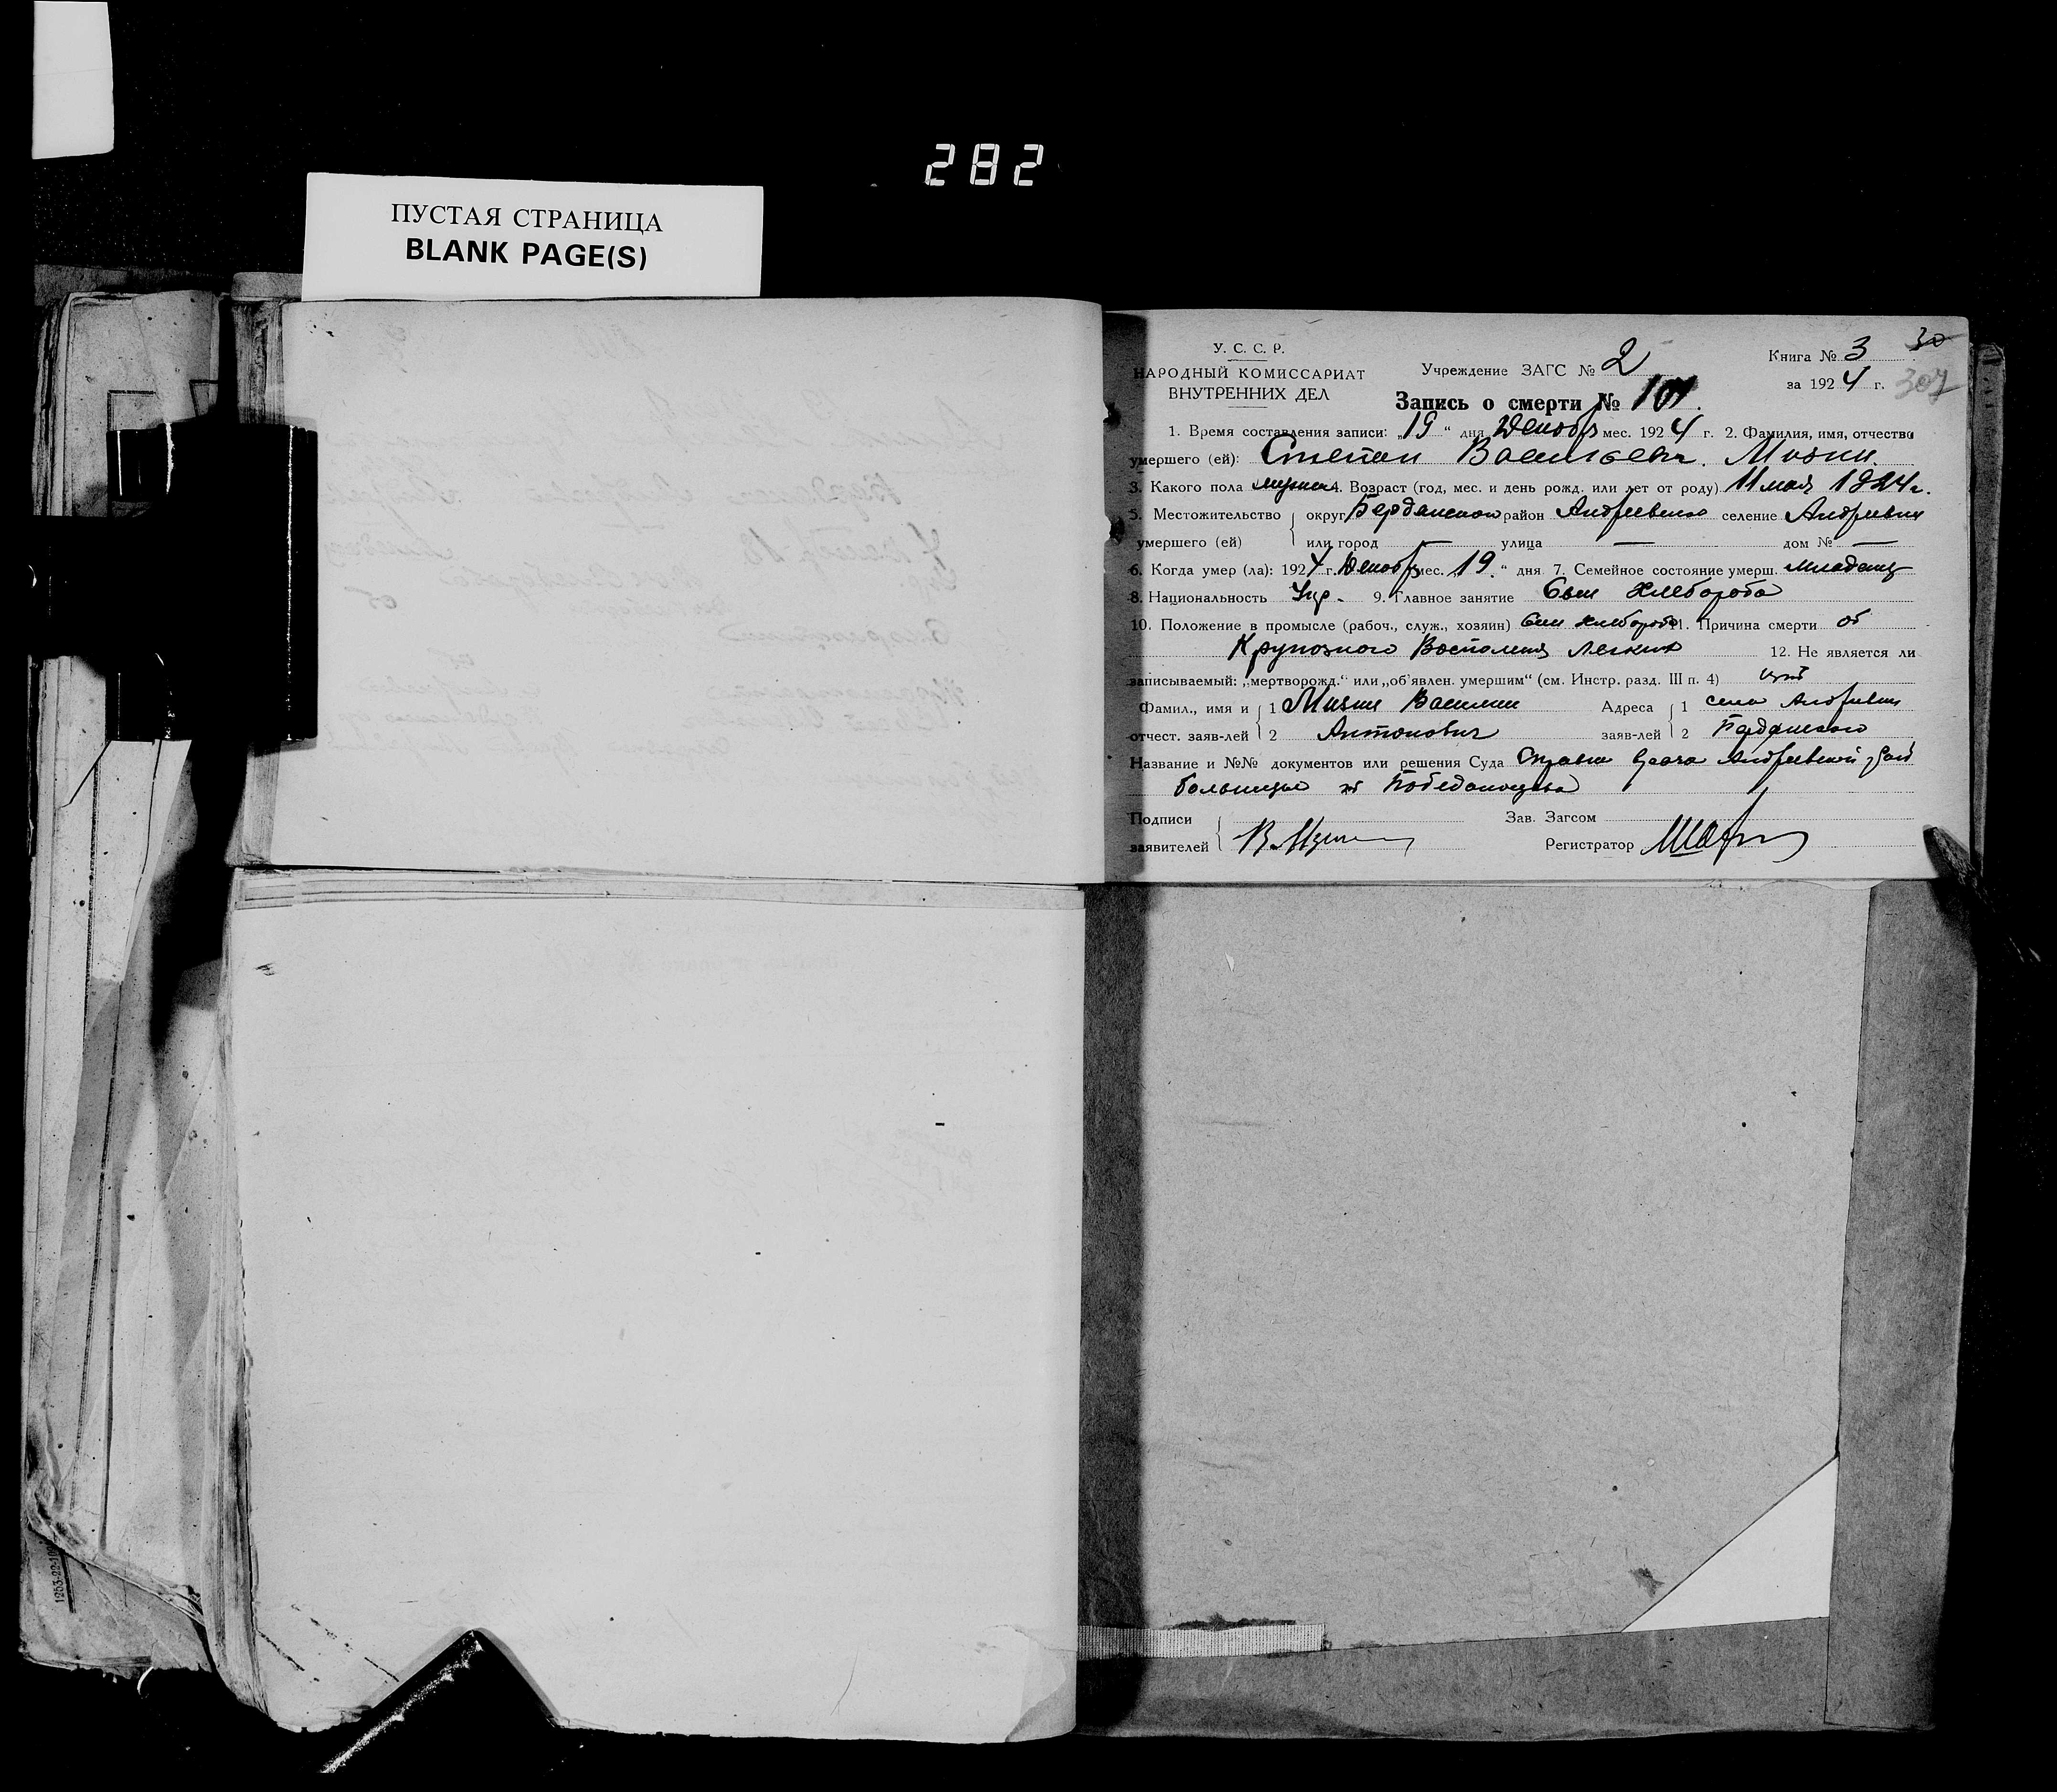 282
ПУСТАЯ СТРАНИЦА
BLANK PAGE(S)
У. С. С. Р.
НАРОДНЫЙ КОМИССАРИАТ
ВНУТРЕННИХ ДЕЛ
Учреждение ЗАГС № 2
Запись о смерти № 101.
Книга № 3 30
за 1924 г. 307
1. Время составления записи: „19“ дня Декобр мес. 1924 г. 2. Фамилия, имя, отчество
умершего (ей): Степан Васильевич
3. Какого пола мужск 4. Возраст (год, мес. и день рожд. или лет от роду) 11 мая 1924 г.
5. Местожительство округ Бердянской район Андреевского селение Андреевки
умершего (ей) или город — улица — дом № —
6. Когда умер (ла): 1924 г. Декобр мес. „19“ дня 7. Семейное состояние умерш. младенец
8. Национальность Укр. 9. Главное занятие Сын Хлебороба
10. Положение в промысле (рабоч., служ., хозяин) Сын хлебороба 11. Причина смерти от
Крупозного Воспаления легких 12. Не является ли
записываемый: „мертворожд.“ или „об'явлен. умершим“ (см. Инстр. разд. III п. 4) нет
Фамил., имя и 1 Василий Адреса 1 село Андреевка
отчест. заяв-лей 2 Антонович заяв-лей 2 Бердянского
Название и №№ документов или решения Суда Справка Врача Андреевской рай
больницы Победоносцева
Подписи Зав. Загсом
заявителей Регистратор
1253-22-10